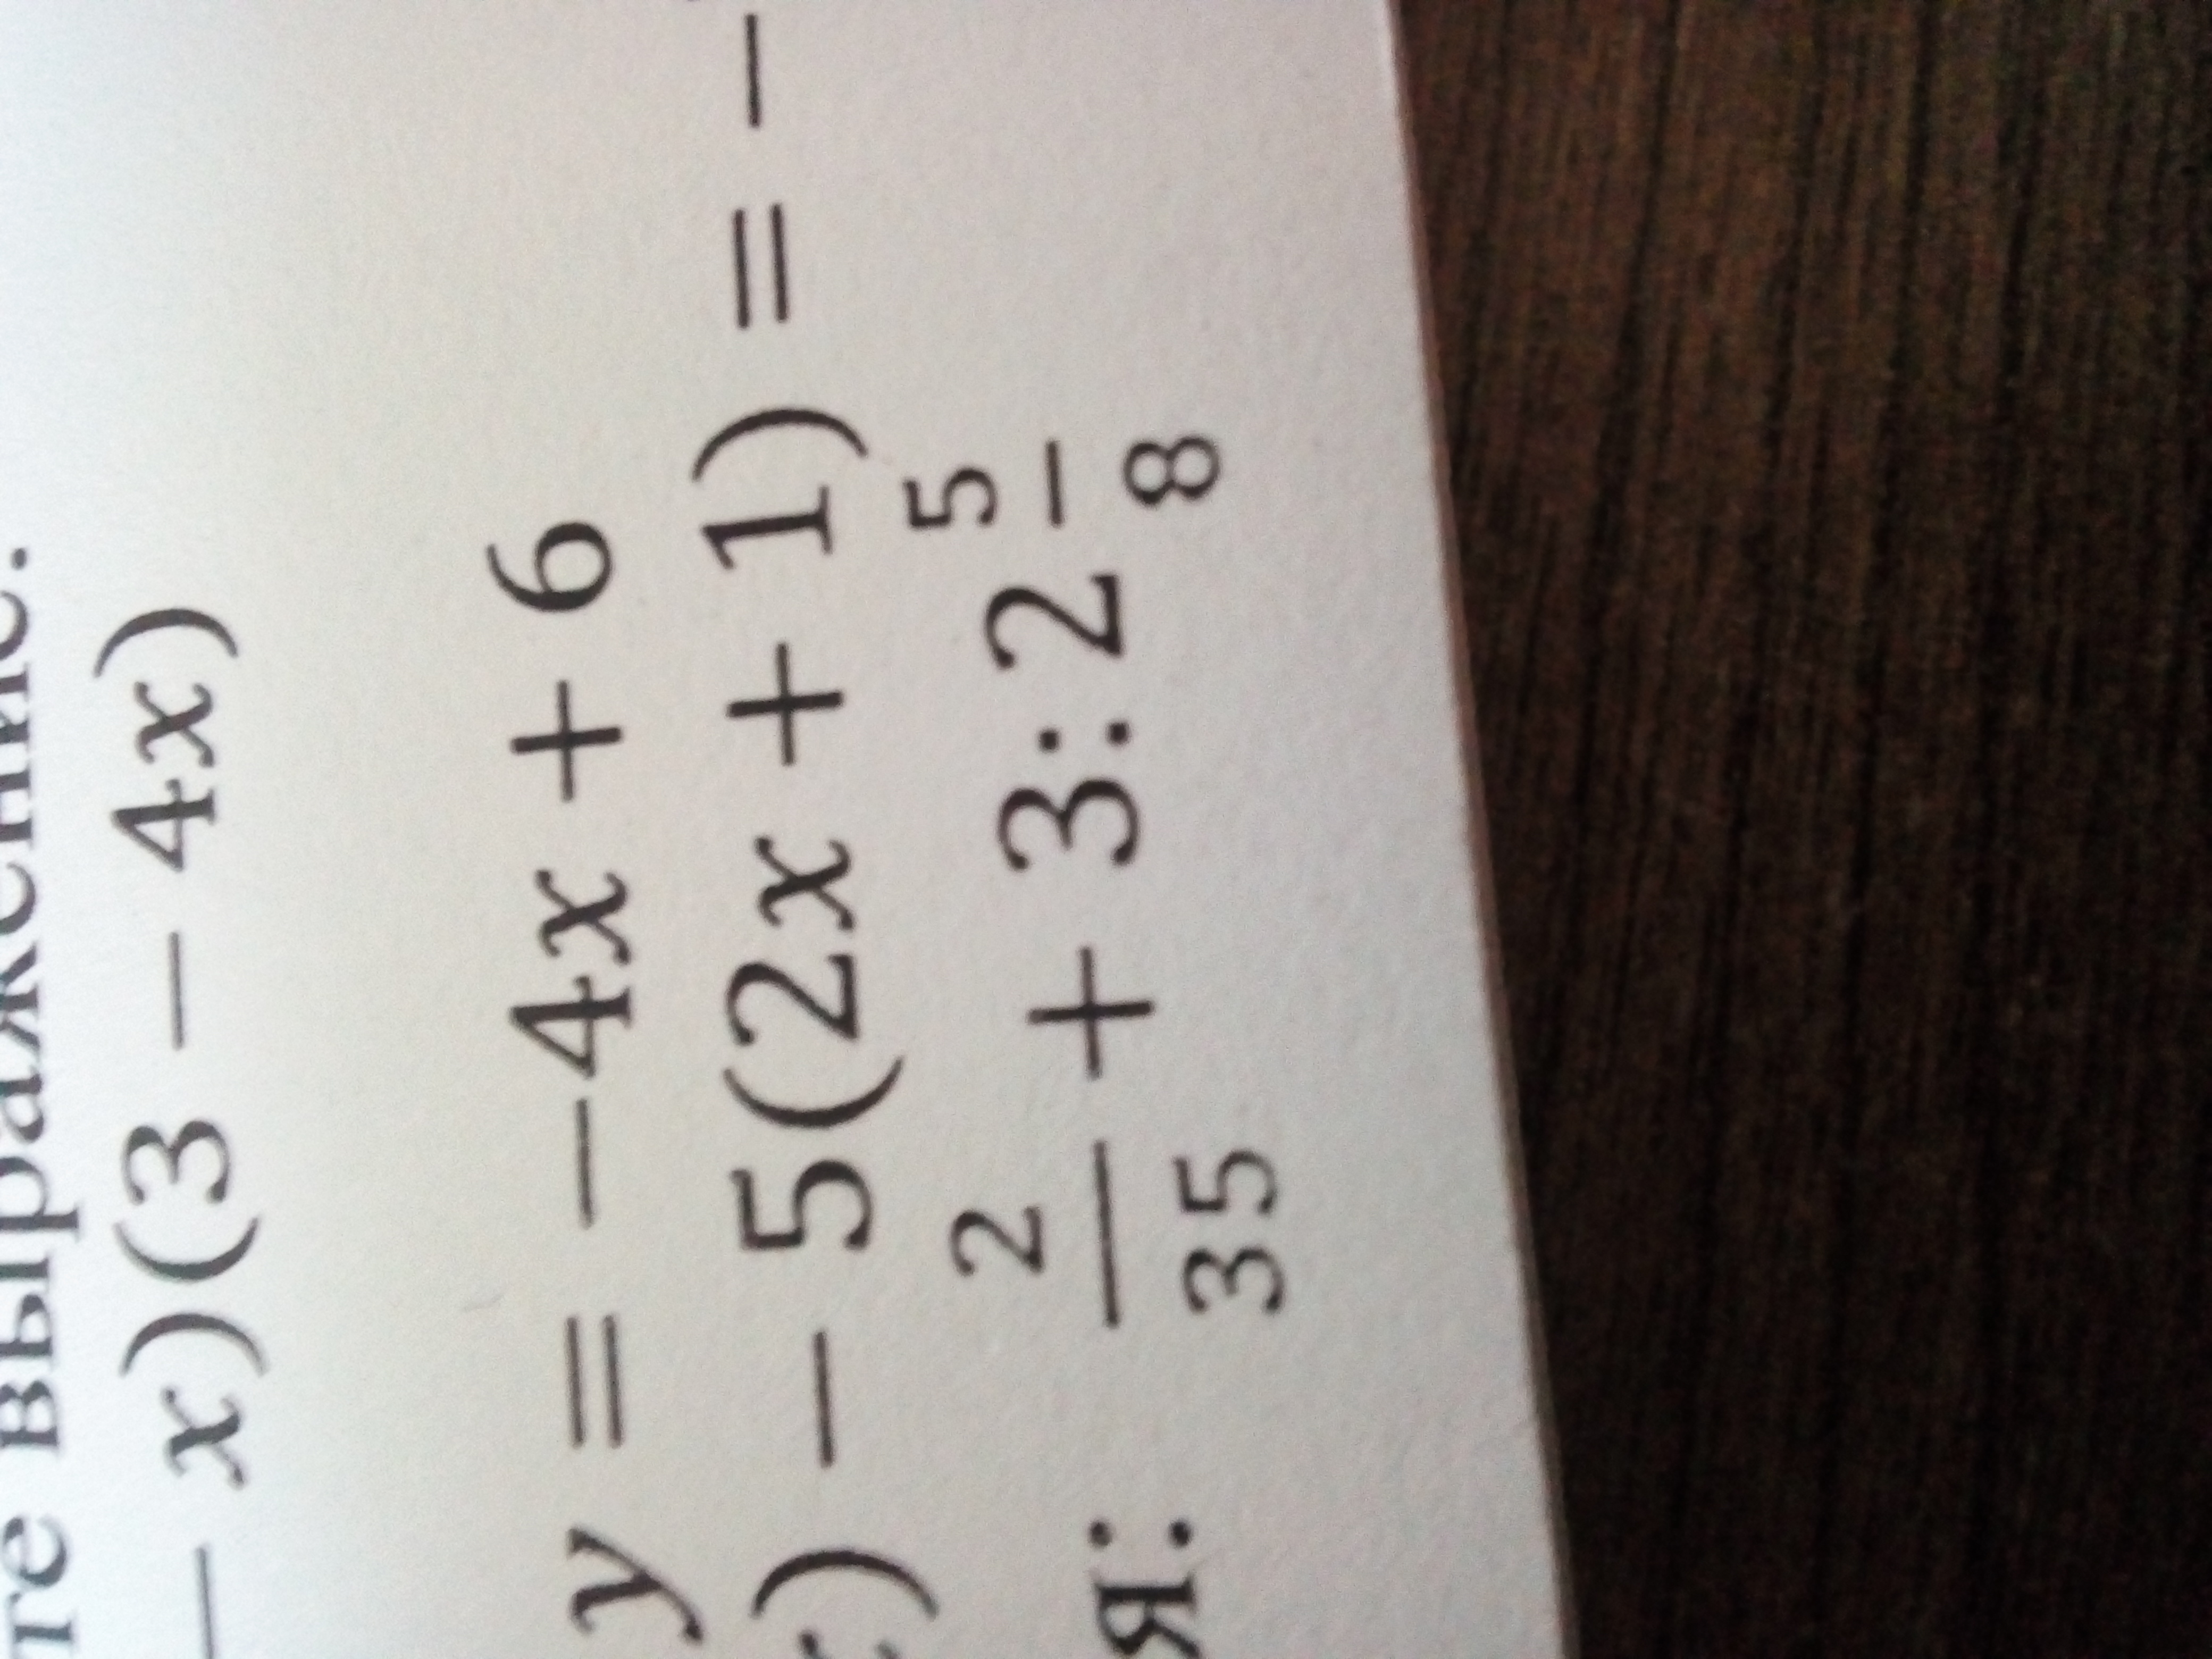 выражение.
– x)(3 – 4x)
y = –4x + 6
) – 5(2x + 1) = –
я: 2/35 + 3: 2 5/8